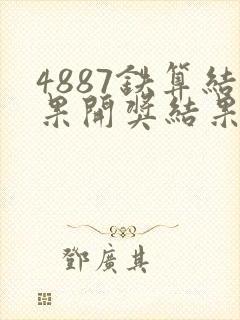 4887鉄算結
果開獎結果
鄧廣其